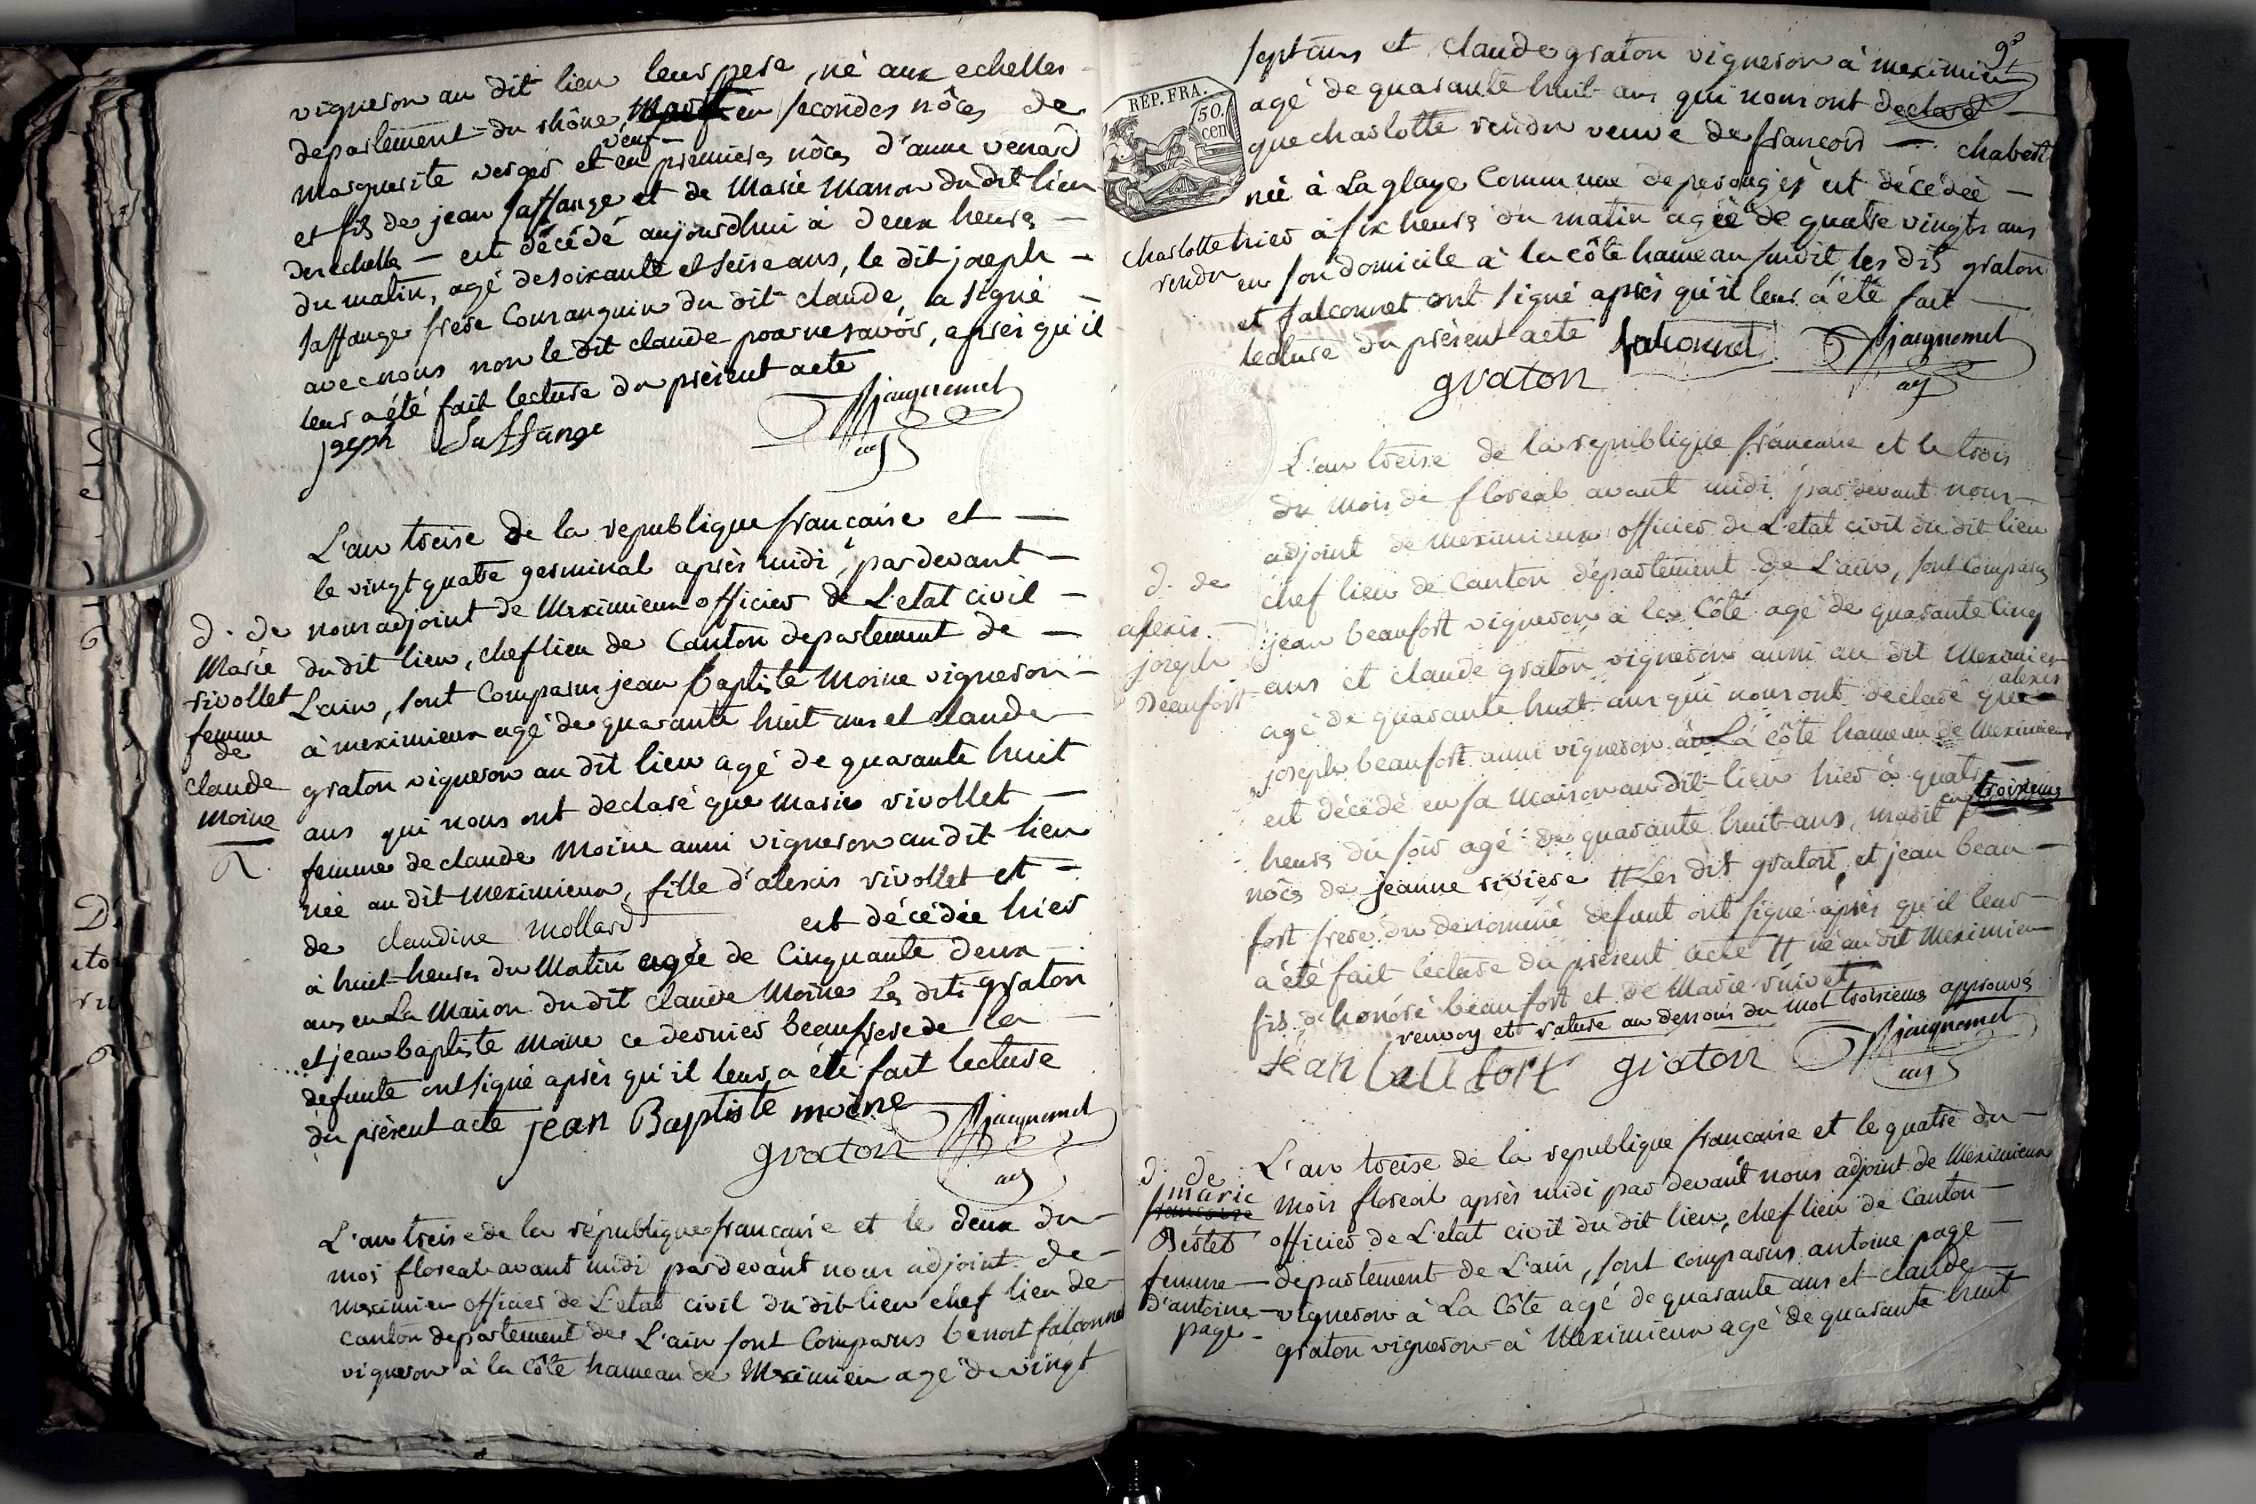 vigneron au dit lieu leur pere, né aux echelles
departement du rhône, en secondes nôces de
veuf
marguerite verger et en premieres nôces d'anne venard
et fils de jean saffange et de Marie Manon du dit lieu
des echelles — est décédé aujourdhui a deux heures —
du matin, agé de soixante et seise ans, le dit joseph —
saffange frere Consanguin du dit claude, a signé —
avec nous non le dit claude pour ne savoir, après qu'il
leur a été fait lecture du present acte
joseph Saffange Jacquemet
adj
L'an treise de la republique française et —
le vingt quatre germinal après midi, pardevant —
nous adjoint de Meximieux officier de L'etat civil —
du dit lieu, chef lieu de Canton departement de —
L'ain, sont Comparus jean baptiste Moine vigneron —
à meximieux agé de quarante huit ans et claude
graton vigneron au dit lieu agé de quarante huit
ans qui nous ont declaré que Marie rivollet —
femme de claude Moine aussi vigneron au dit lieu
née au dit meximieux, fille d'alexis rivollet et —
de claudine Mollard est décédée hier
à huit heures du Matin agée de Cinquante deux —
ans en La Maison du dit claude Moine Les dits graton
et jean baptiste Moine ce dernier beaufrere de la —
defunte ont signé après qu'il leur a été fait lecture
du présent acte jean Baptiste moine
graton Jacquemet
adj
d. de
Marie
rivollet
femme
de
claude
Moine
L'an treise de la république française et le deux du —
mois floreal avant midi pardevant nous adjoint de —
Meximieu officier de L'etat civil du dit lieu chef lieu de
canton departement de L'ain sont Comparus benoit falconnet
vigneron à la Côte hameau de Meximieu agé de vingt
sept ans et claude graton vigneron à meximieu
agé de quarante huit ans qui nous ont declaré —
que charlotte rendu veuve de françois — chabert
née à La glaye Commune de perouges est décédée —
hier à six heures du matin agée de quatre vingts ans
en son domicile à la côte hameau susdit les dits graton
et falconnet ont signé après qu'il leur a été fait —
lecture du present acte falconnet Jacquemet
graton adj
REP. FRA.
50.
cen
charlotte
rendu
L'an treise de la republique française et le trois
du Mois de floreal avant midi pardevant nous —
adjoint de Meximieux officier de L'etat civil du dit lieu
chef lieu de Canton département de L'ain, sont Comparus
jean beaufort vigneron à la Côte agé de quarante Cinq
ans et claude graton vigneron aussi au dit Meximieu
agé de quarante huit ans qui nous ont declaré que alexis
joseph beaufort aussi vigneron à La côte hameau de Meximieux
est décédé en sa Maison au dit lieu hier à quatre —
heures du soir agé de quarante huit ans, marit en troisiemes
nôces de jeanne riviere # Les dit graton et jean beau —
fort frere du denommé defunt ont signé après qu'il leur —
a été fait lecture du présent acte # né au dit Meximieu
fils d'honoré beaufort et de Marie
renvoy et rature au dessous du mot troisiemes approuvés
jéan baufort graton Jacquemet
adj
d. de
alexis —
joseph
Beaufort
L'an treise de la republique française et le quatre du —
mois floreal après midi par devant nous adjoint de Meximieux
officier de L'etat civil du dit lieu, chef lieu de Canton —
departement de L'ain, sont comparus antoine page —
vigneron à La Côte agé de quarante ans et claude —
graton vigneron à Meximieux agé de quarante huit
d. de
marie
Bertet
femme
d'antoine
page